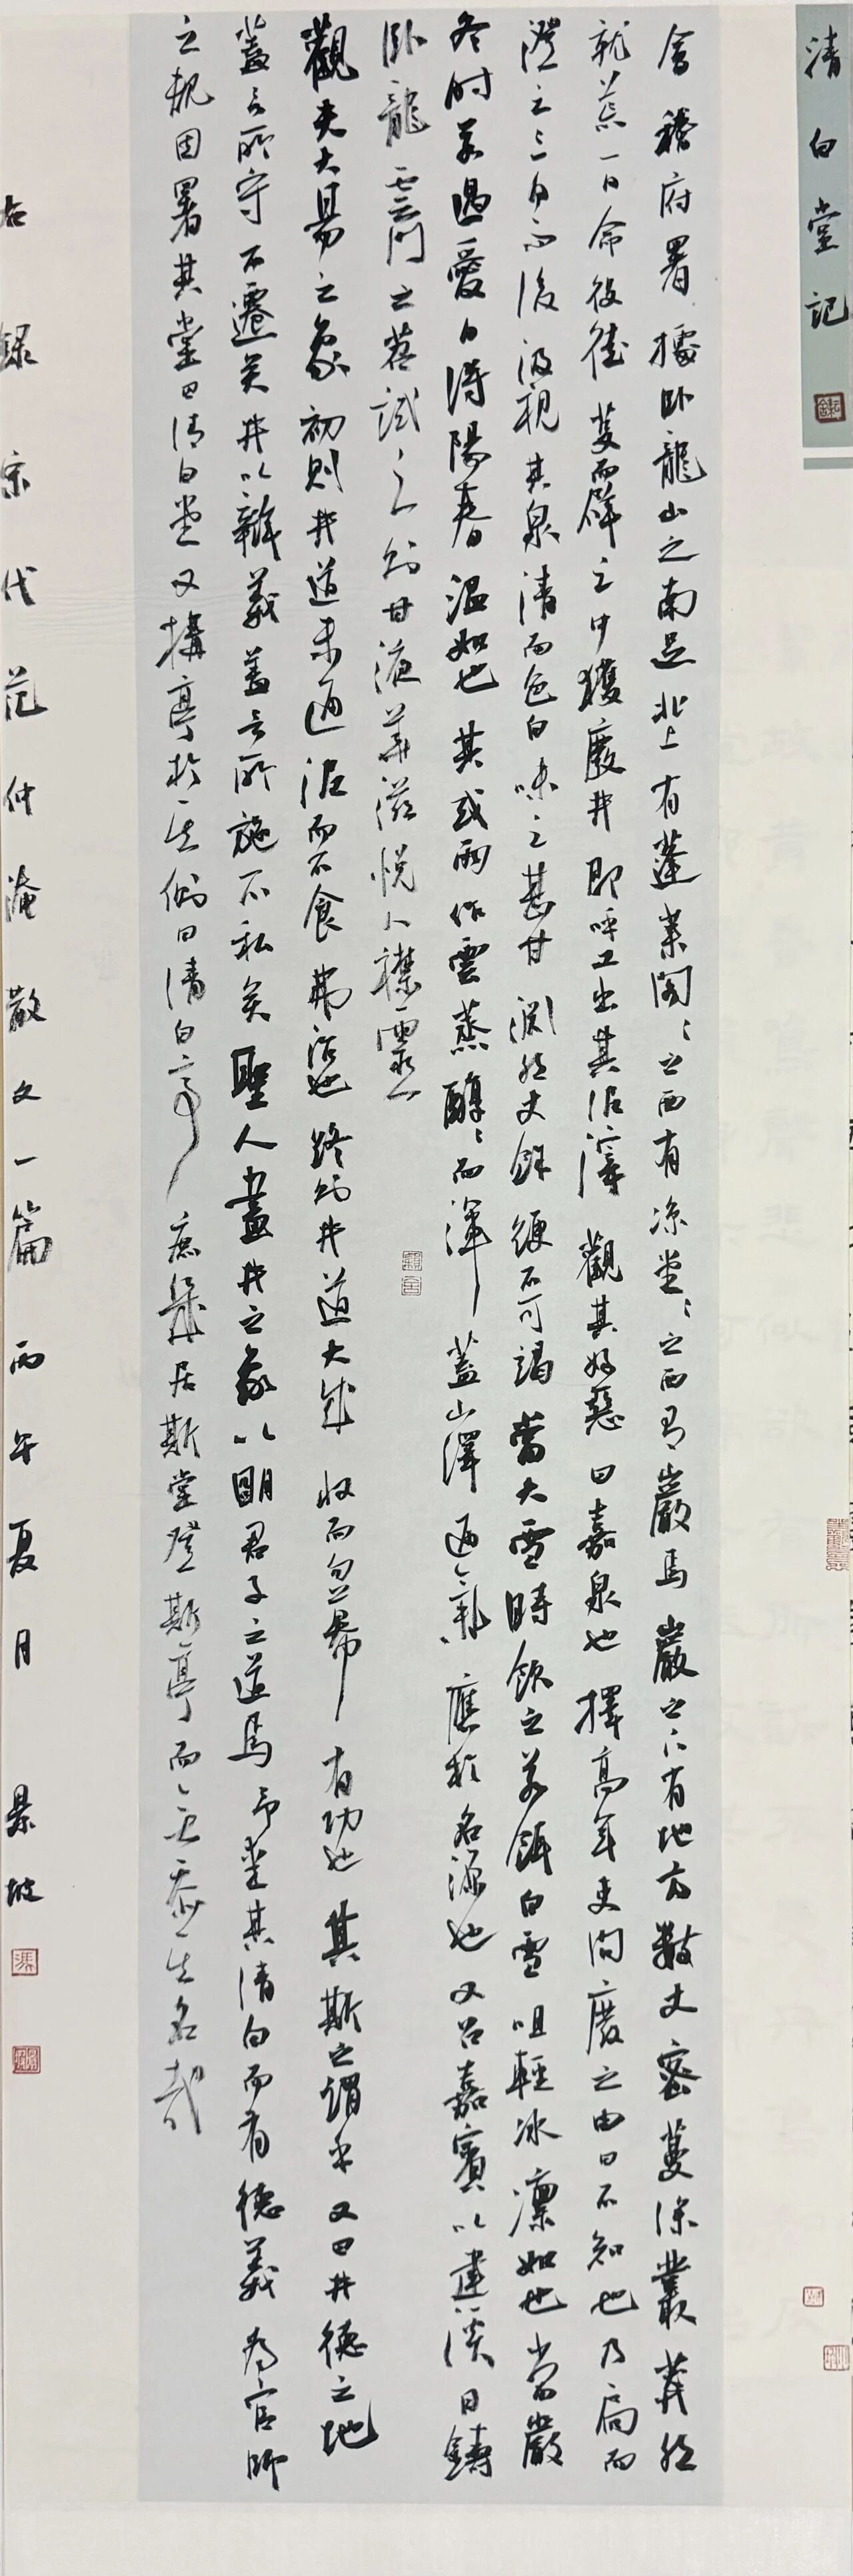 清白堂記
會稽府署據卧龍山之南足北上有蓬萊閣閣之西有涼堂堂之西有巖焉巖之下有地方數丈密蔓深叢莽然
就荒一日命役徒芟而辟之中獲廢井即呼工出其泥滓觀其好惡曰嘉泉也擇高年吏問廢之由曰不知也乃扃而
澄之三日而後汲視其泉清而色白味之甚甘淵然丈餘綆不可竭當大暑時飲之若餌白雪咀輕冰凜如也當嚴
冬時若遇愛日得陽春溫如也其或雨作雲蒸醇醇而渾蓋山澤通氣應於名源也又召嘉賓以建溪日鑄
卧龍雲門之茗試之則甘液華滋悅人襟靈
觀夫大易之象初則井道未通泥而不食弗治也終則井道大成收而勿幕有功也其斯之謂乎又曰井德之地
蓋言所守不遷矣井以辯義蓋言所施不私矣聖人畫井之象以明君子之道焉予愛其清白而有德義爲官師
之規因署其堂曰清白堂又構亭於其側曰清白亭庶幾居斯堂登斯亭而無忝其名哉
右錄宋代范仲淹散文一篇丙午夏月 景坡